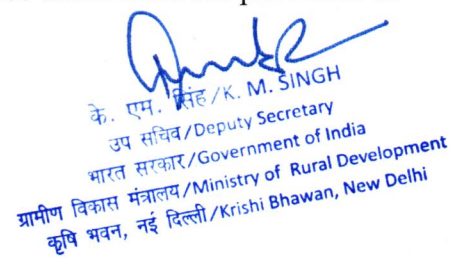 के. एम. सिंह/K. M. SINGH
उप सचिव/Deputy Secretary
भारत सरकार/Government of India
ग्रामीण विकास मंत्रालय/Ministry of Rural Development
कृषि भवन, नई दिल्ली/Krishi Bhawan, New Delhi